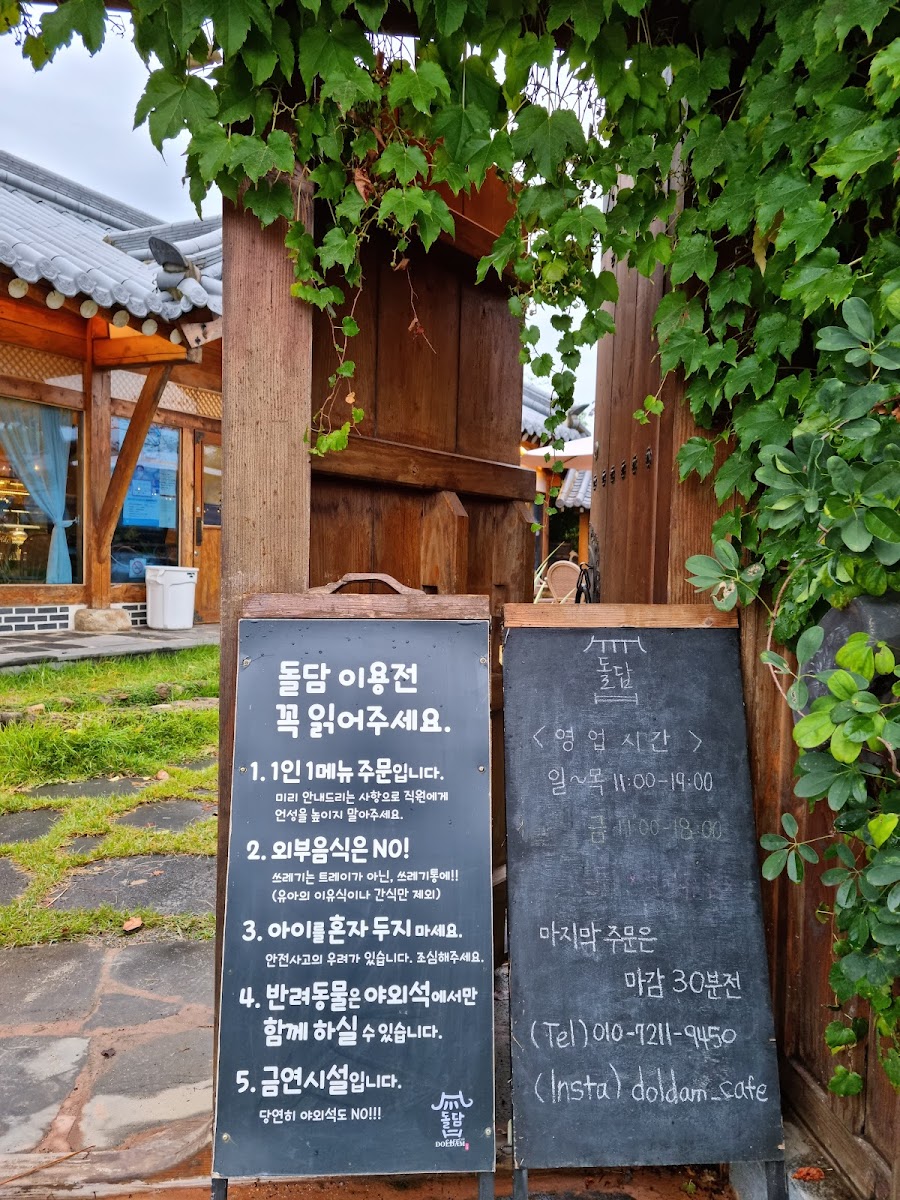 돌담 이용전
꼭 읽어주세요.
1. 1인 1메뉴 주문입니다.
미리 안내드리는 사항으로 직원에게
언성을 높이지 말아주세요.
2. 외부음식은 NO!
쓰레기는 트레이가 아닌, 쓰레기통에!!
(유아의 이유식이나 간식만 제외)
3. 아이를 혼자 두지 마세요.
안전사고의 우려가 있습니다. 조심해주세요.
4. 반려동물은 야외석에서만
함께 하실 수 있습니다.
5. 금연시설입니다.
당연히 야외석도 NO!!!
돌담
DOLDAM
돌담
< 영업시간 >
일~목 11:00-19:00
금 11:00-18:00
마지막 주문은
마감 30분전
(Tel) 010-7211-9450
(Insta) doldam_cafe